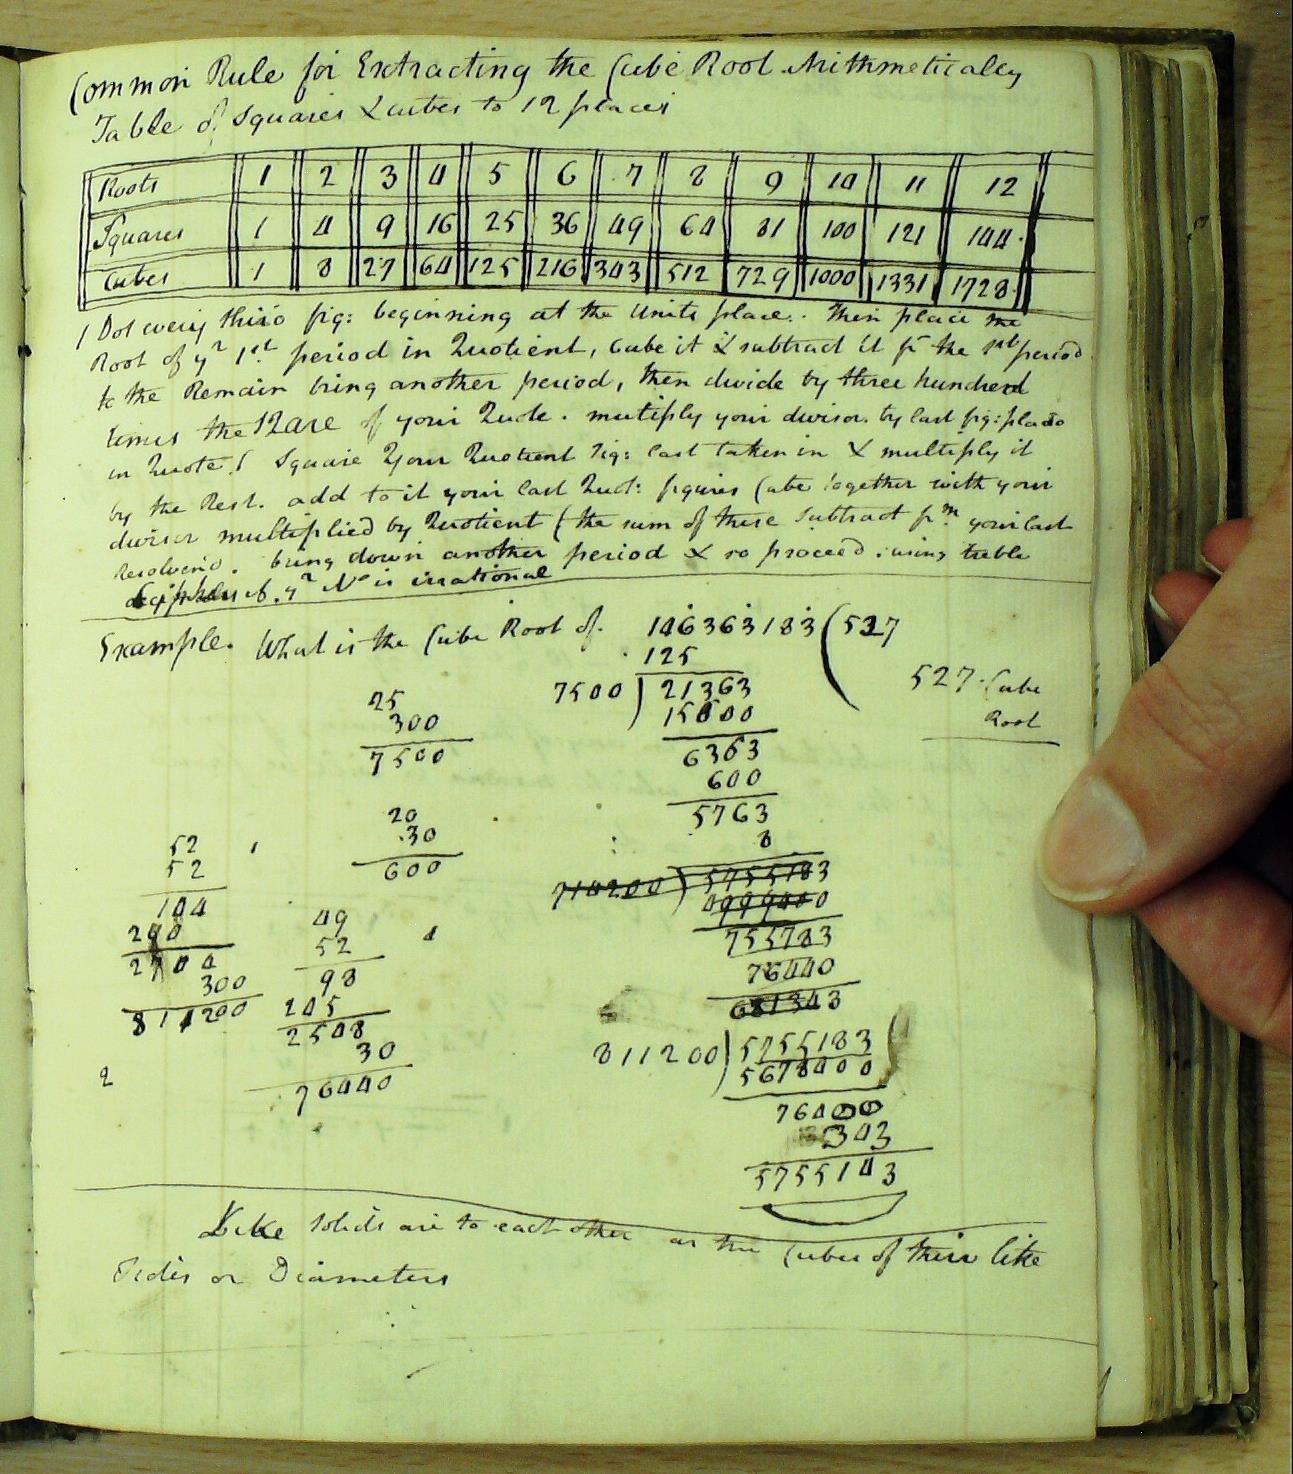 Common Rule for Extracting the Cube Root Arithmetically
Table of Squares & cubes to 12 places
Roots 1 2 3 4 5 6 7 8 9 10 11 12
Squares 1 4 9 16 25 36 49 64 81 100 121 144
Cubes 1 8 27 64 125 216 343 512 729 1000 1331 1728
Dot every third fig: beginning at the Units place. Then place the
Root of yr 1st period in Quotient, Cube it & subtract it fm the 1st period
to the Remain bring another period, then divide by three hundred
times the Square of your Quote. multiply your divisor by last fig: placd
in Quote. Square Your Quotient fig: last taken in & multiply it
by the Rest. add to it your last Quot: figures Cube together with your
divisor multiplied by Quotient (the sum of these Subtract fm your last
Resolvend. bring down another period & so proceed. using
if yr No is irrational
Example. What is the Cube Root of. 146363183 (527
125
7500) 21363
527. Cube
Root
25
300
7500
15000
6363
600
5763
8
20
30
600
52
52
104
260
2704
300
811200
49
52
98
245
2548
30
76440
5755183
755783
76440
811200) 5755183
5678400
76400
343
5755143
2
Like Solids are to each other as the Cubes of their like
Sides or Diameters